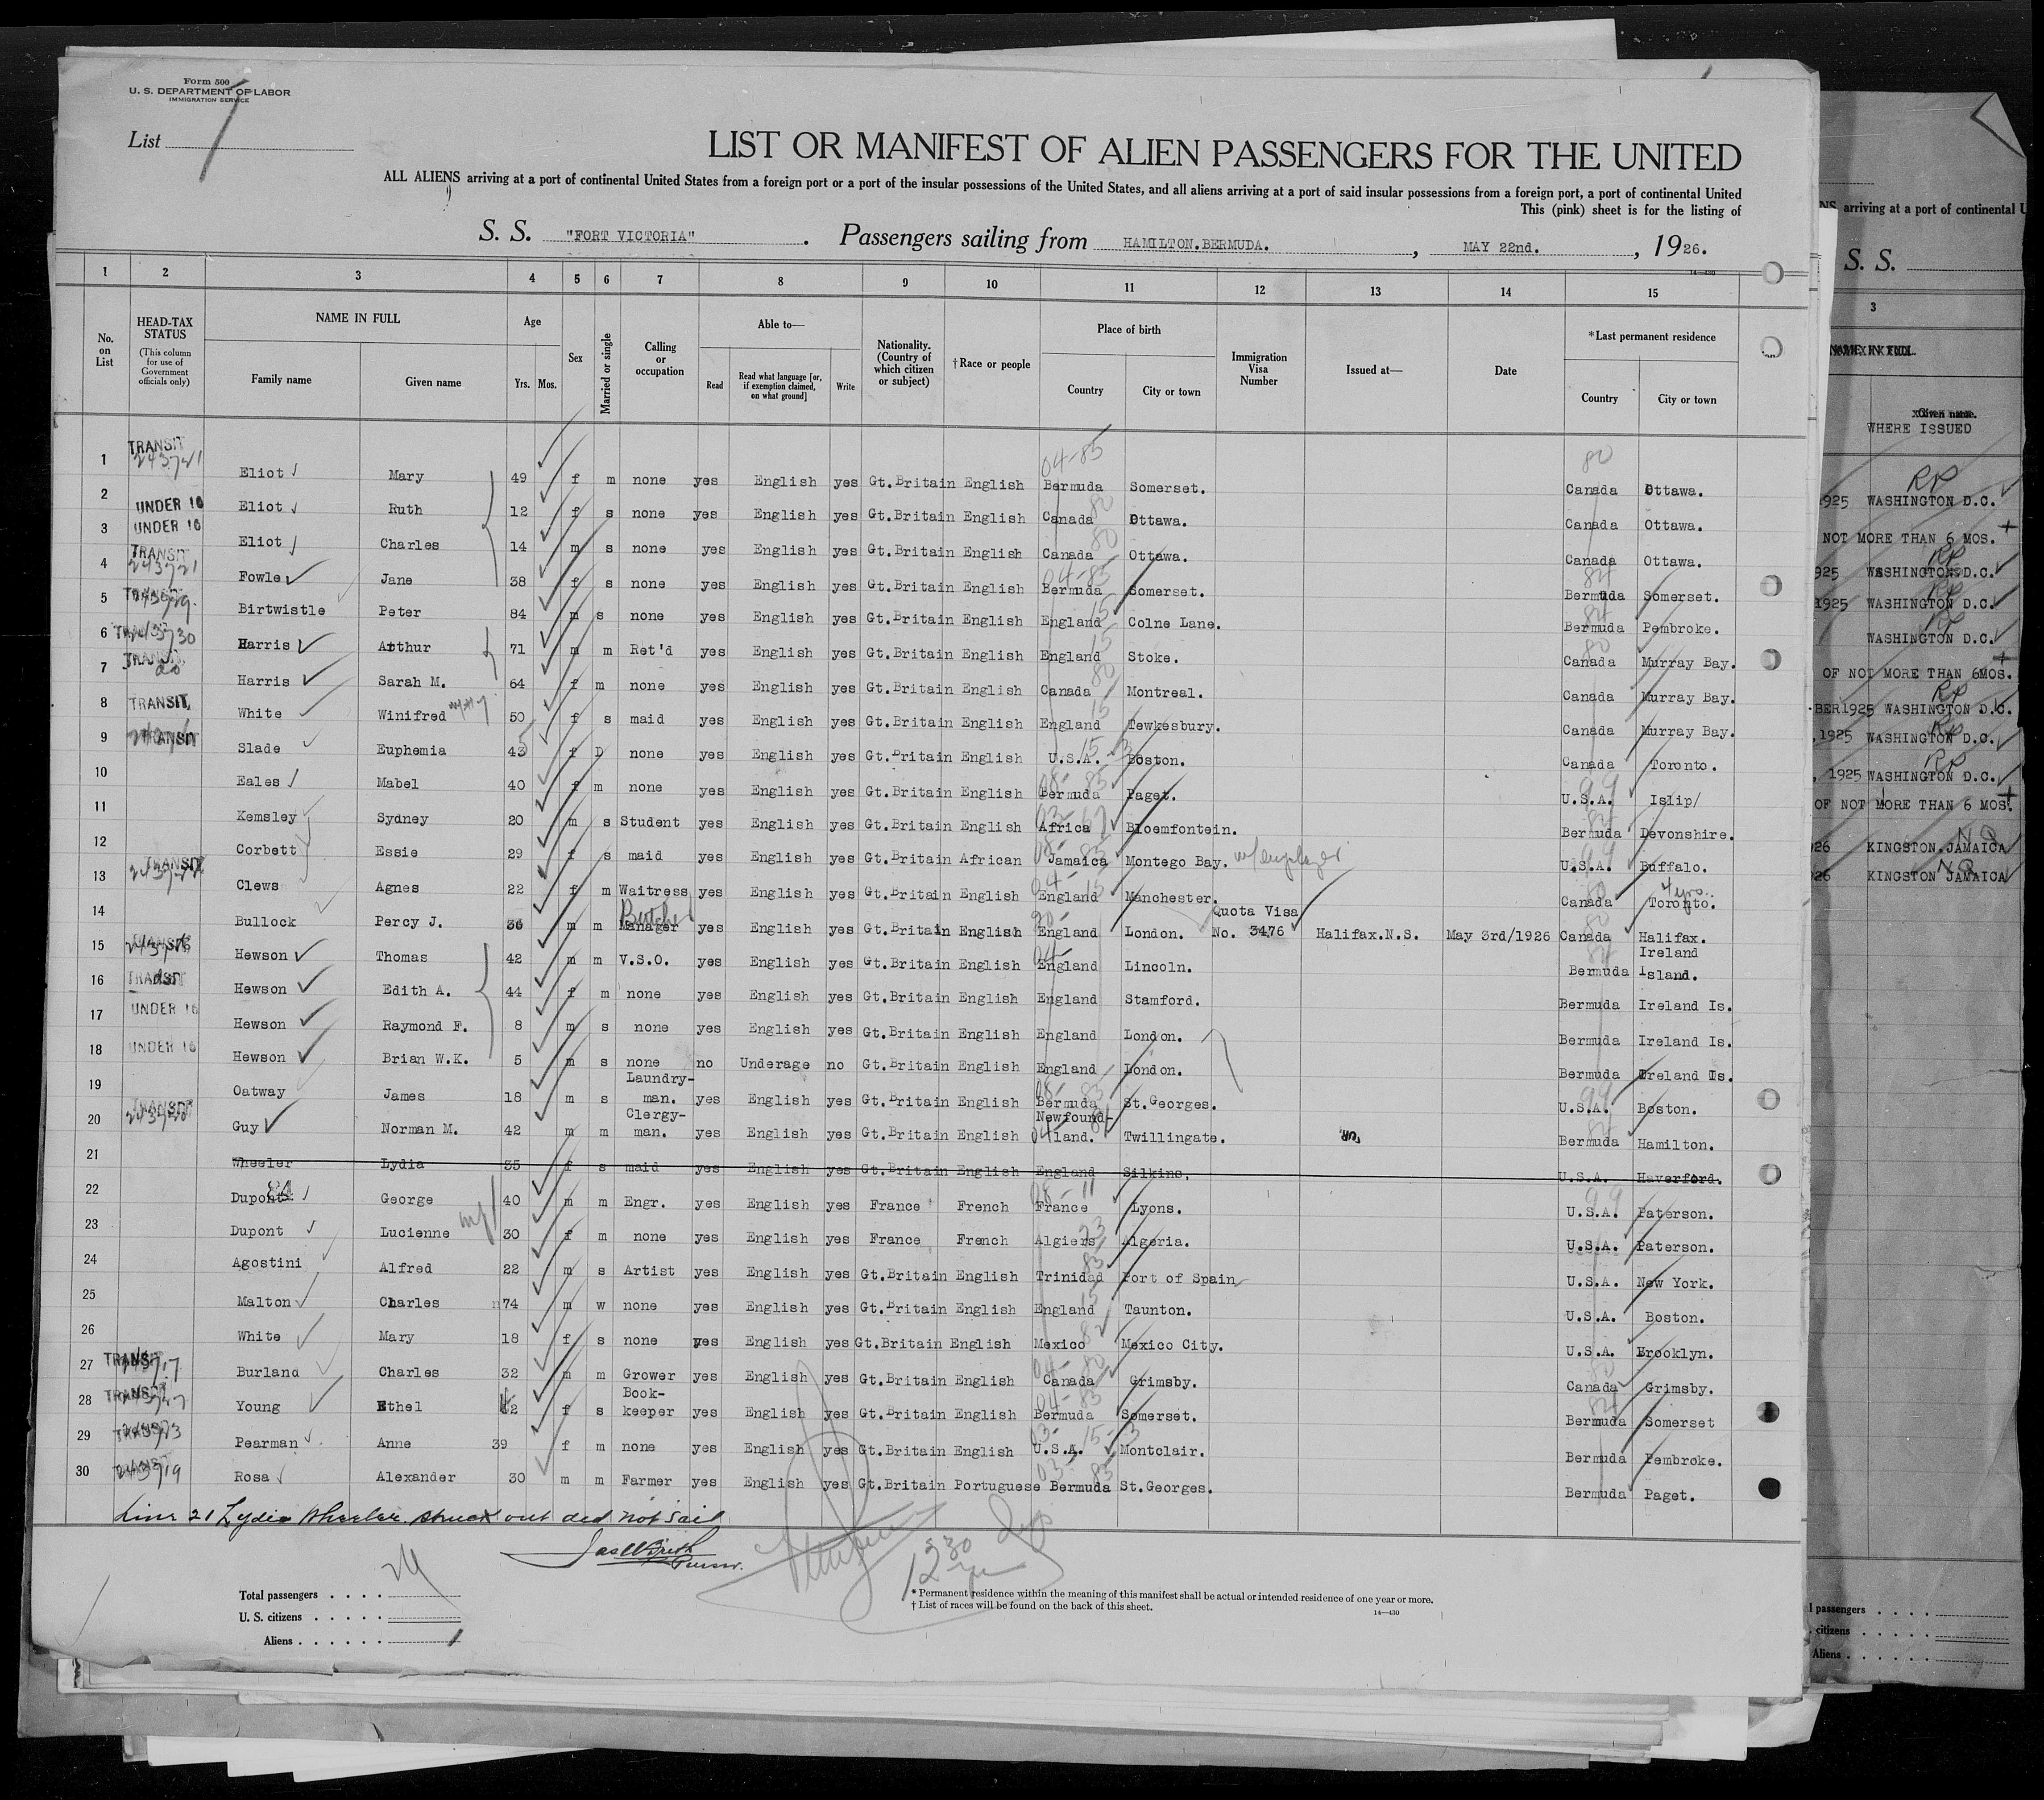 Form 500
U. S. DEPARTMENT OF LABOR
IMMIGRATION SERVICE
List
LIST OR MANIFEST OF ALIEN PASSENGERS FOR THE UNITED
ALL ALIENS arriving at a port of continental United States from a foreign port or a port of the insular possessions of the United States, and all aliens arriving at a port of said insular possessions from a foreign port, a port of continental United
This (pink) sheet is for the listing of
S. S. "FORT VICTORIA" . Passengers sailing from HAMILTON.BERMUDA. , MAY 22nd. , 1926.
14-430
1 2 3 4 5 6 7 8 9 10 11 12 13 14 15
No. on List
HEAD-TAX STATUS (This column for use of Government officials only)
NAME IN FULL Family name Given name
Age Yrs. Mos.
Sex
Married or single
Calling or occupation
Able to— Read Read what language [or, if exemption claimed, on what ground] Write
Nationality. (Country of which citizen or subject)
†Race or people
Place of birth Country City or town
Immigration Visa Number
Issued at—
Date
*Last permanent residence Country City or town
1 TRANSIT 243721 Eliot Mary 49 f m none yes English yes Gt.Britain English 04-85 Bermuda Somerset. 80 Canada Ottawa.
2 UNDER 16 Eliot Ruth 12 f s none yes English yes Gt.Britain English 80 Canada Ottawa. Canada Ottawa.
3 UNDER 16 Eliot Charles 14 m s none yes English yes Gt.Britain English 80 Canada Ottawa. Canada Ottawa.
4 TRANSIT 243721 Fowle Jane 38 f s none yes English yes Gt.Britain English 04-85 Bermuda Somerset. 84 Bermuda Somerset.
5 Birtwistle Peter 84 m s none yes English yes Gt.Britain English 15 England Colne Lane. 84 Bermuda Pembroke.
6 Harris Arthur 71 m m Ret'd yes English yes Gt.Britain English 15 England Stoke. 80 Canada Murray Bay.
7 TRANSIT do Harris Sarah M. 64 f m none yes English yes Gt.Britain English 80 Canada Montreal. Canada Murray Bay.
8 TRANSIT White Winifred 50 f s maid yes English yes Gt.Britain English 15 England Tewkesbury. Canada Murray Bay.
9 TRANSIT Slade Euphemia 43 f D none yes English yes Gt.Britain English 15-3 U.S.A. Boston. Canada Toronto.
10 Eales Mabel 40 f m none yes English yes Gt.Britain English 08-85 Bermuda Paget. 99 U.S.A. Islip/
11 Kemsley Sydney 20 m s Student yes English yes Gt.Britain English Africa Bloemfontein. 84 Bermuda Devonshire.
12 Corbett Essie 29 f s maid yes English yes Gt.Britain African Jamaica Montego Bay. w/employer 99 U.S.A. Buffalo.
13 TRANSIT Clews Agnes 22 f m Waitress yes English yes Gt.Britain English 04-15 England Manchester. 80 Canada 4 yrs. Toronto.
14 Bullock Percy J. 36 m m Butcher Manager yes English yes Gt.Britain English England London. Quota Visa No. 3476 Halifax.N.S. May 3rd/1926 80 Canada Halifax.
15 TRANSIT Hewson Thomas 42 m m V.S.O. yes English yes Gt.Britain English 04- England Lincoln. 84 Bermuda Ireland Island.
16 TRANSIT Hewson Edith A. 44 f m none yes English yes Gt.Britain English England Stamford. Bermuda Ireland Is.
17 UNDER 16 Hewson Raymond F. 8 m s none yes English yes Gt.Britain English England London. Bermuda Ireland Is.
18 UNDER 16 Hewson Brian W.K. 5 m s none no Underage no Gt.Britain English England London. Bermuda Ireland Is.
19 Oatway James 18 m s Laundry-man. yes English yes Gt.Britain English 08-85 Bermuda St.Georges. 99 U.S.A. Boston.
20 TRANSIT Guy Norman M. 42 m m Clergy-man. yes English yes Gt.Britain English 04 Newfound-land. Twillingate. 84 Bermuda Hamilton.
21 Wheeler Lydia 35 f s maid yes English yes Gt.Britain English England Silkins. U.S.A. Haverford.
22 Dupont George 40 m m Engr. yes English yes France French 08-11 France Lyons. 99 U.S.A. Paterson.
23 Dupont Lucienne 30 f m none yes English yes France French Algiers Algeria. U.S.A. Paterson.
24 Agostini Alfred 22 m s Artist yes English yes Gt.Britain English 85 Trinidad Port of Spain U.S.A. New York.
25 Malton Charles 74 m w none yes English yes Gt.Britain English 15 England Taunton. U.S.A. Boston.
26 White Mary 18 f s none yes English yes Gt.Britain English 82 Mexico Mexico City. U.S.A. Brooklyn.
27 TRANSIT Burland Charles 32 m m Grower yes English yes Gt.Britain English 04-80 Canada Grimsby. 80 Canada Grimsby.
28 TRANSIT Young Ethel 42 f s Book-keeper yes English yes Gt.Britain English 04-85 Bermuda Somerset. 84 Bermuda Somerset
29 Pearman Anne 39 f m none yes English yes Gt.Britain English 03-15-3 U.S.A. Montclair. Bermuda Pembroke.
30 Rosa Alexander 30 m m Farmer yes English yes Gt.Britain Portuguese Bermuda St.Georges. Bermuda Paget.
Line 21 Lydia Wheeler struck out did not sail
Purser.
12 30
Total passengers . . . .
U. S. citizens . . . . .
Aliens . . . . . .
* Permanent residence within the meaning of this manifest shall be actual or intended residence of one year or more.
† List of races will be found on the back of this sheet.
14-430
arriving at a port of continental U
S. S.
3
NAME IN FULL.
Given name.
WHERE ISSUED
1925 WASHINGTON D.C.
NOT MORE THAN 6 MOS.
925 WASHINGTON D.C.
1925 WASHINGTON D.C.
WASHINGTON D.C.
OF NOT MORE THAN 6MOS.
BER1925 WASHINGTON D.C.
,1925 WASHINGTON D.C.
, 1925 WASHINGTON D.C.
OF NOT MORE THAN 6 MOS.
26 KINGSTON.JAMAICA
26 KINGSTON JAMAICA
l passengers . . . .
citizens . . . . .
Aliens . . . . . .